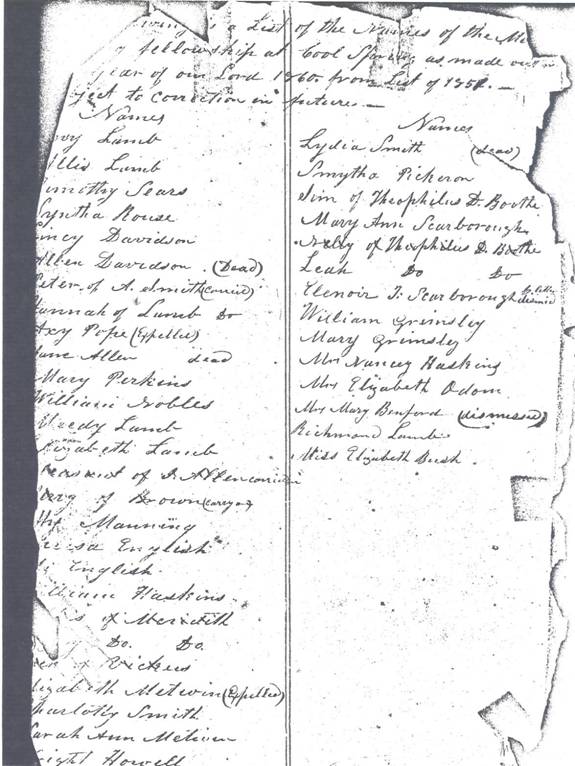 wing is a List of the Names of the Me
fellowship at Cool Spring as made out in
year of our Lord 1860 from List of 1858. —
ject to correction in future. —
Names
vy Lamb
illis Lamb
imothy Sears
Syntha Rouse
incy Davidson
Allen Davidson. (Dead)
eter of A. Smith
annah of Lamb Do
Axy Pope (Expelled)
ane Allen dead
Mary Perkins
William Nobles
Hardy Lamb
lizabeth Lamb
of J. Allen
of Brown
Manning
sa English
English
illiam Haskins
s of Meredith
Do. Do.
of Vickers
lizabeth (Expelled)
harlotty Smith
arah Ann
ight Howell
Names
Lydia Smith (dead)
Smytha Pickeron
Jim of Theophilus D. Boothe
Mary Ann Scarborough
of Theophilus D. Boothe
Leah Do Do
Elenoir J. Scarborough by letter dismised
William Grimsley
Mary Grimsley
Mrs Nancey Haskins
Mrs Elizabeth Odom
Mrs Mary Benford (dismissed)
Richmond Lamb
Miss Elizabeth Bush.